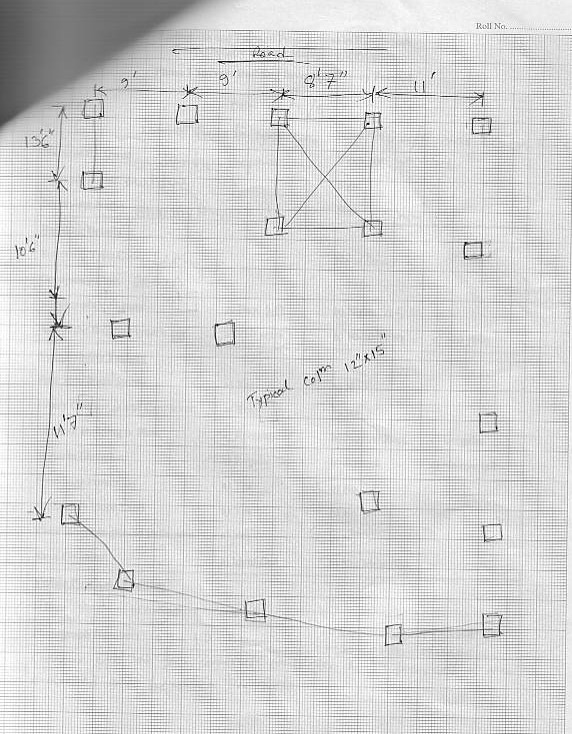 Roll No.
Road
9' 9' 8'7" 11'
13'6"
10'6"
Typical Colm 12"x15"
11'7"